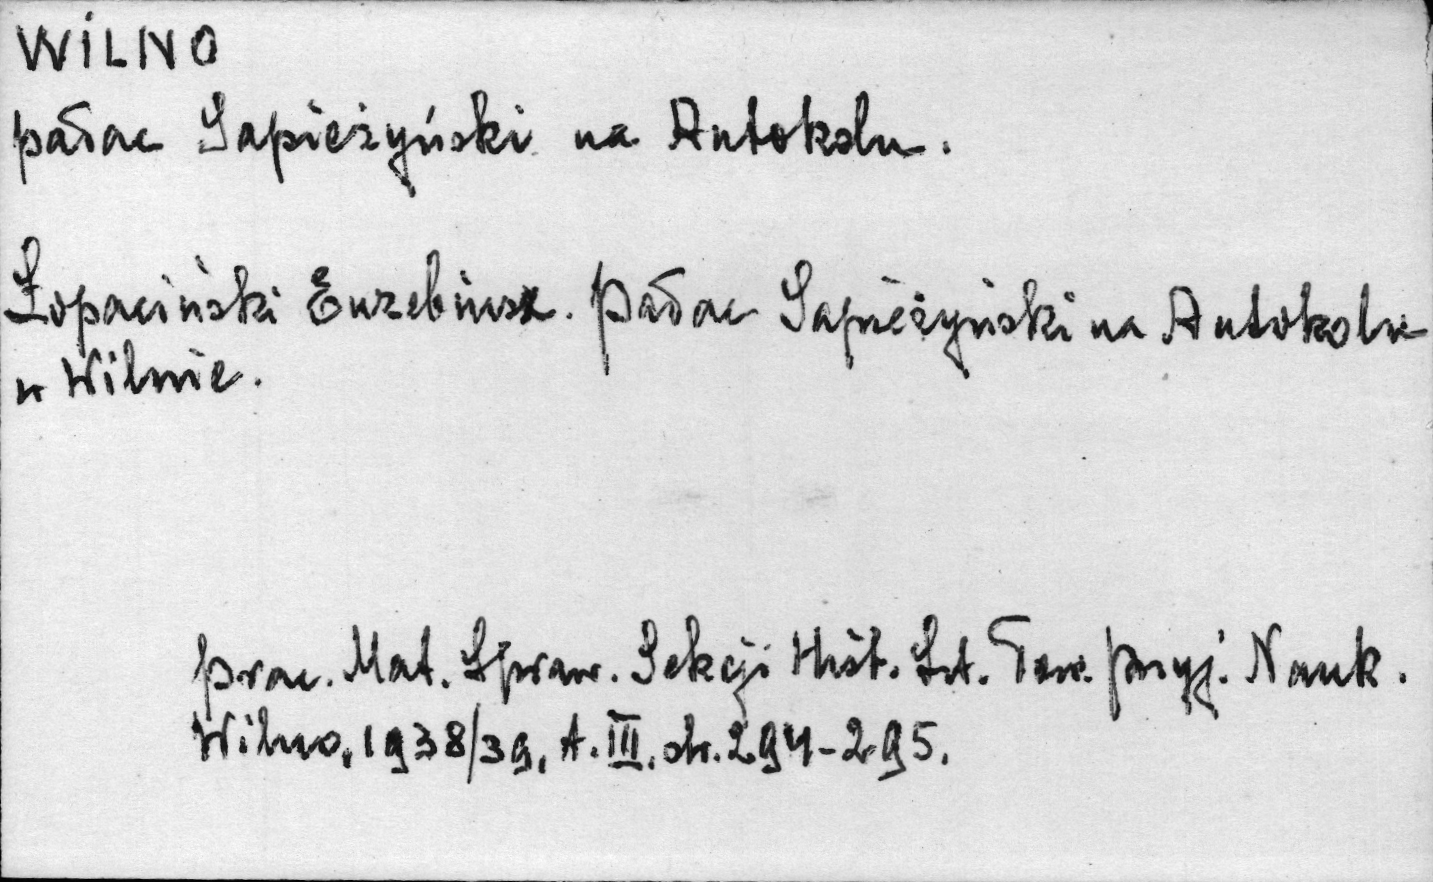 WILNO
pałac Sapieżyński na Antokolu.
Łopaciński Euzebiusz. Pałac Sapieżyński na Antokolu
w Wilnie.
Prac. Mat. Spraw. Sekcji Hist. Szt. Tow. Przyj. Nauk.
Wilno, 1938/39, t. III. str. 294-295.